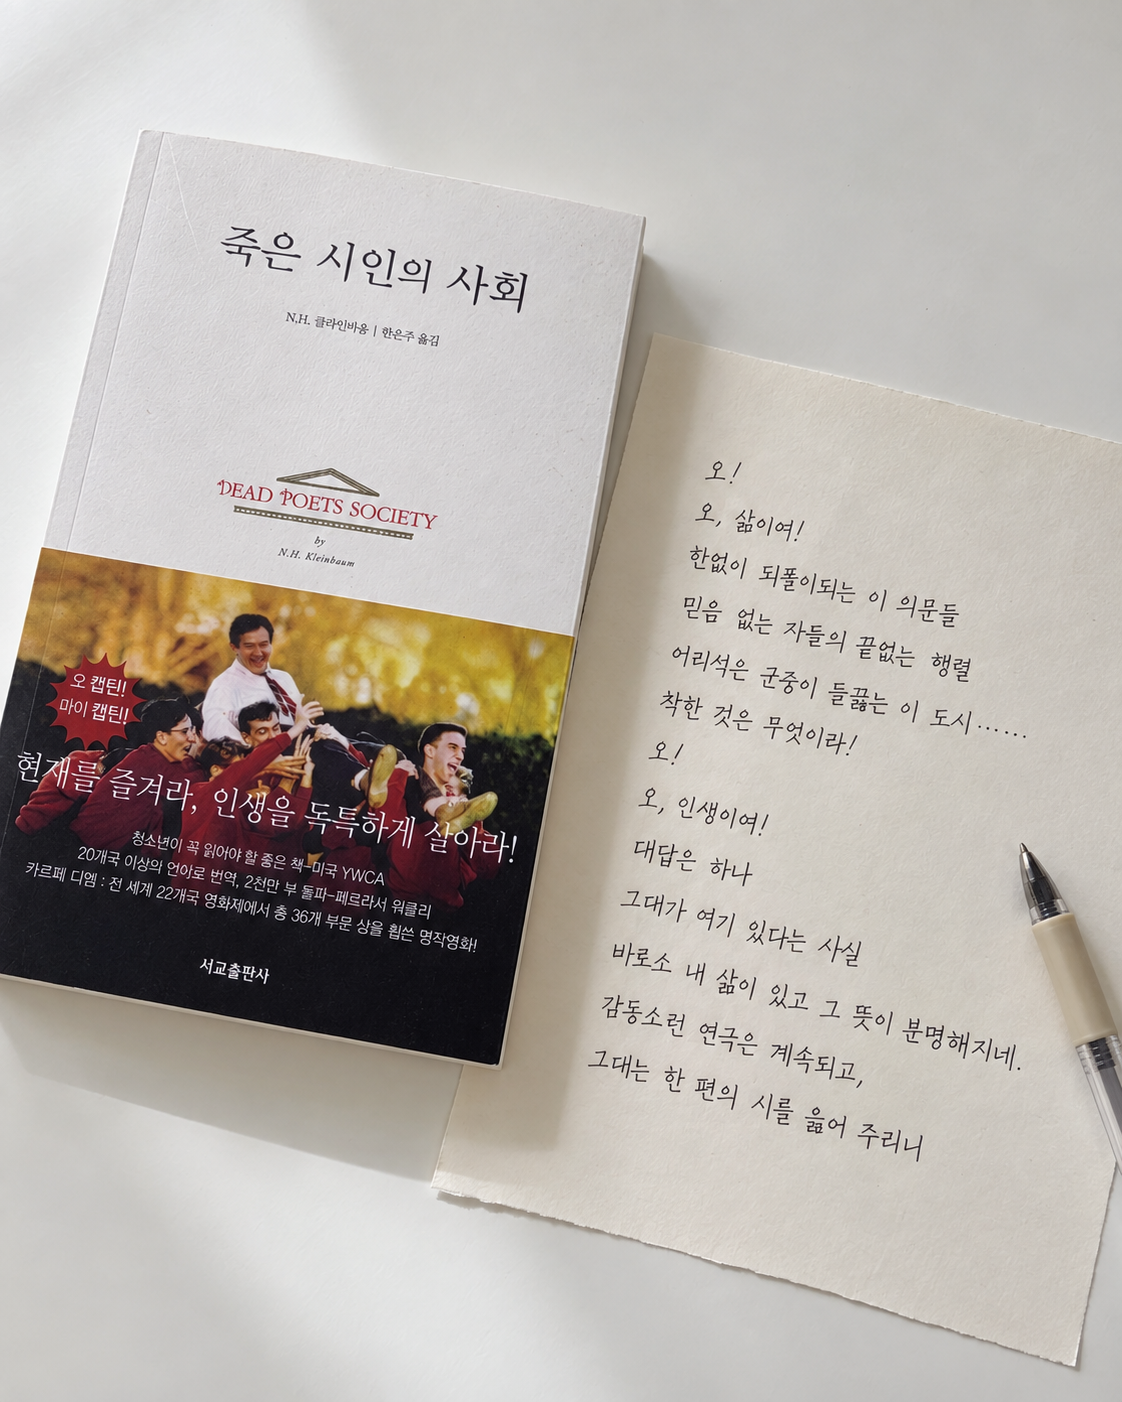 죽은 시인의 사회
N.H. 클라인바움 | 한은주 옮김
DEAD POETS SOCIETY
by
N.H. Kleinbaum
오 캡틴!
마이 캡틴!
현재를 즐겨라, 인생을 독특하게 살아라!
청소년이 꼭 읽어야 할 좋은 책-미국 YWCA
20개국 이상의 언어로 번역, 2천만 부 돌파-페르라서 워클리
카르페 디엠 : 전 세계 22개국 영화제에서 총 36개 부문 상을 휩쓴 명작영화!
서교출판사
오!
오, 삶이여!
한없이 되풀이되는 이 의문들
믿음 없는 자들의 끝없는 행렬
어리석은 군중이 들끓는 이 도시……
착한 것은 무엇이랴!
오!
오, 인생이여!
대답은 하나
그대가 여기 있다는 사실
바로소 내 삶이 있고 그 뜻이 분명해지네.
감동소런 연극은 계속되고,
그대는 한 편의 시를 읊어 주리니